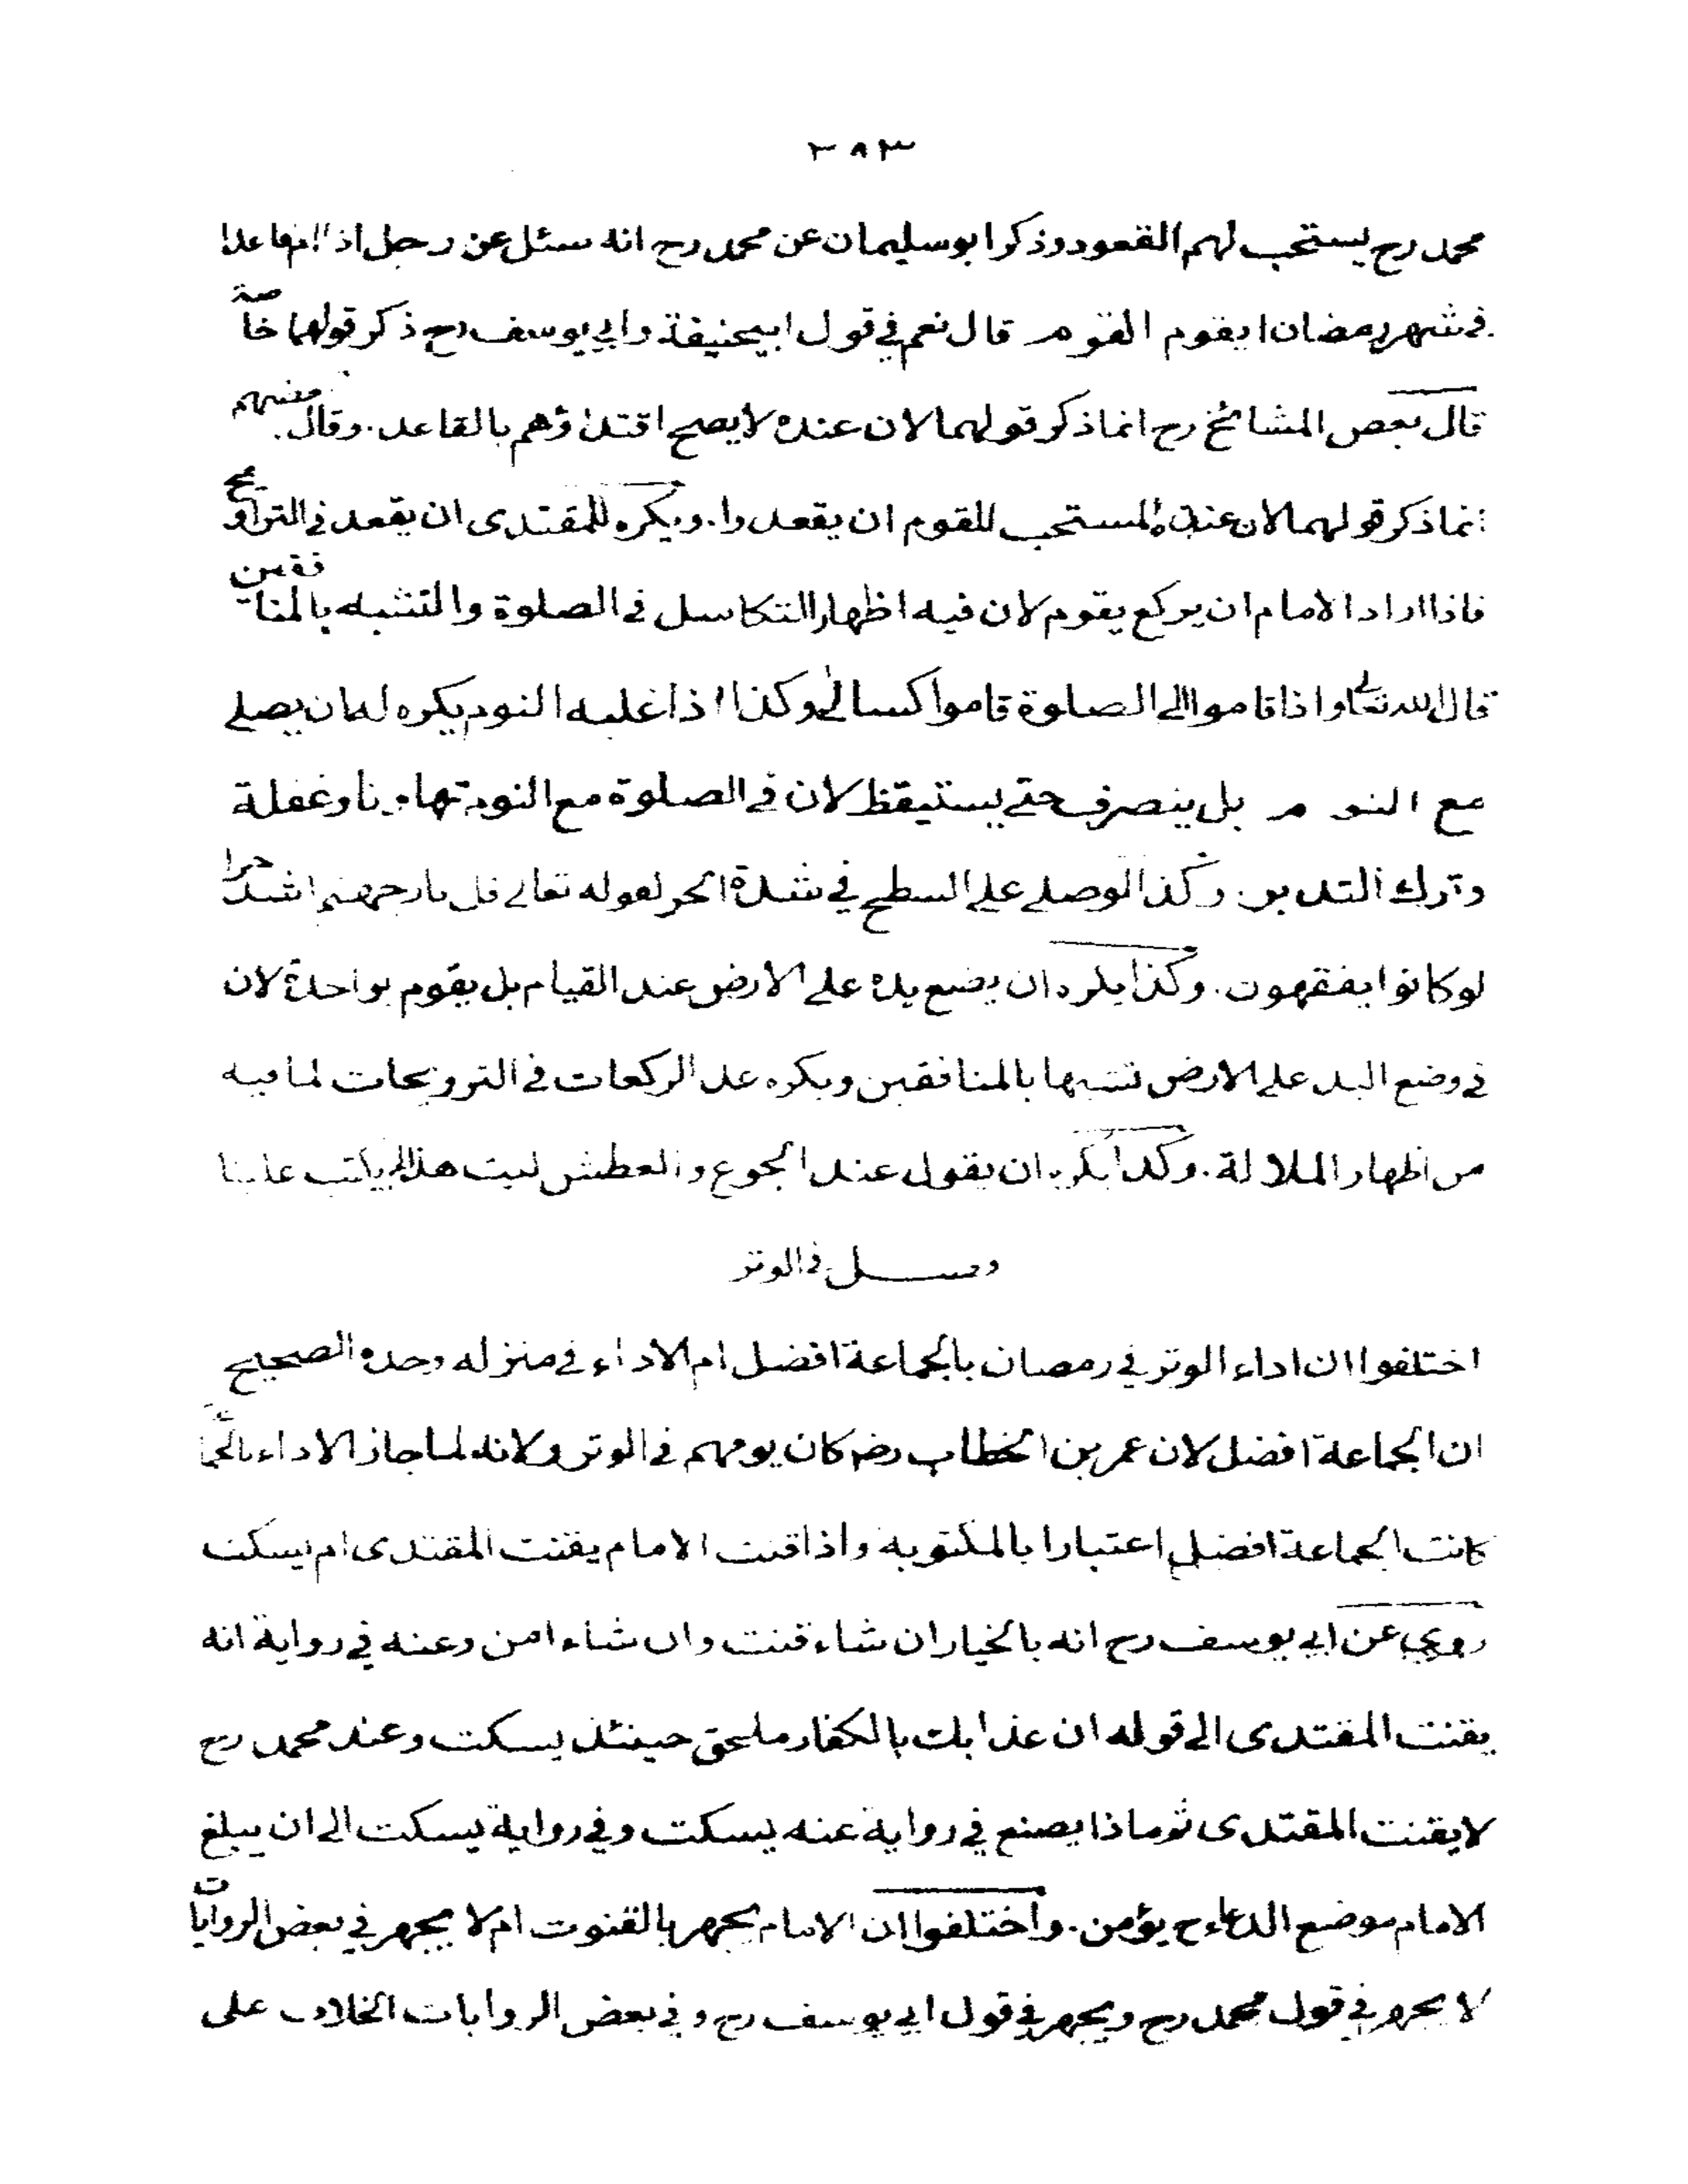 ٣٨٣
محمد رح يستحب لهم القعود وذكر ابو سليمان عن محمد رح انه سئل عن رجل اذا ام قاعدا
في شهر رمضان ايقوم القوم قال نعم في قول ابيحنيفة وابي يوسف رح ذكر قولهما خاصة
قال بعض المشائخ رح انما ذكر قولهما لان عنده لا يصح اقتداؤهم بالقاعد. وقال بعضهم
انما ذكر قولهما لان عنده المستحب للقوم ان يقعدوا. ويكره للمقتدى ان يقعد في التراويح
فاذا اراد الامام ان يركع يقوم لان فيه اظهار التكاسل في الصلوة والتشبه بالمنافقين
قال الله تعالى واذا قاموا الى الصلوة قاموا كسالى وكذا اذا غلبه النوم يكره له ان يصلے
مع النوم بل ينصرف حتے يستيقظ لان في الصلوة مع النوم تهاونا وغفلة
وترك التدبر. وكذا لو صلے علے السطح في شدة الحر لقوله تعالے قل نار جهنم اشد حرا
لو كانوا يفقهون. وكذا يكره ان يضع يده علے الارض عند القيام بل يقوم بواحدة لان
في وضع اليد علے الارض تشبها بالمنافقين ويكره عد الركعات في الترويحات لما فيه
من اظهار الملالة. وكذا يكره ان يقول عند الجوع والعطش ليت هذا لم يكتب علينا
فصل في الوتر
اختلفوا ان اداء الوتر في رمضان بالجماعة افضل ام الاداء في منزله وحده الصحيح
ان الجماعة افضل لان عمر بن الخطاب رضہ كان يومهم في الوتر ولانه لما جاز الاداء بالجماعة
كانت الجماعة افضل اعتبارا بالمكتوبة واذا قنت الامام يقنت المقتدى ام يسكت
روي عن ابي يوسف رح انه بالخيار ان شاء قنت وان شاء امن وعنه في رواية انه
يقنت المقتدى الى قوله ان عذابك بالكفار ملحق حينئذ يسكت وعند محمد رح
لا يقنت المقتدى ثم ماذا يصنع في رواية عنه يسكت وفي رواية يسكت الى ان يبلغ
الامام موضع الدعاء ح يؤمن. واختلفوا ان الامام يجهر بالقنوت ام لا يجهر في بعض الروايات
لا يجهر في قول محمد رح ويجهر في قول ابي يوسف رح وفي بعض الروايات الخلاف على